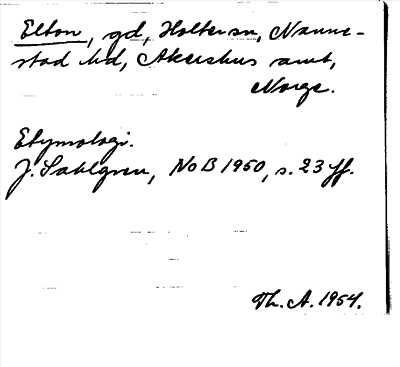 Elton, gd, Holter sn, Nanne-
stad hd, Akershus amt,
Norge.
Etymologi.
J. Sahlgren, NoB 1950, s. 23 ff.
Th. A. 1954.